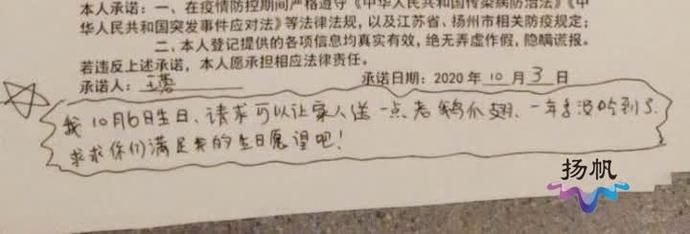 本人承诺：一、在疫情防控期间严格遵守《中华人民共和国传染病防治法》《中
华人民共和国突发事件应对法》等法律法规，以及江苏省、扬州市相关防疫规定；
二、本人登记提供的各项信息均真实有效，绝无弄虚作假，隐瞒谎报。
若违反上述承诺，本人愿承担相应法律责任。
承诺人：王 承诺日期：2020 年 10 月 3 日
我10月6日生日、请求可以让家人送一点老鹅爪翅、一年多没吃到了.
求求你们满足我的生日愿望吧！
扬帆